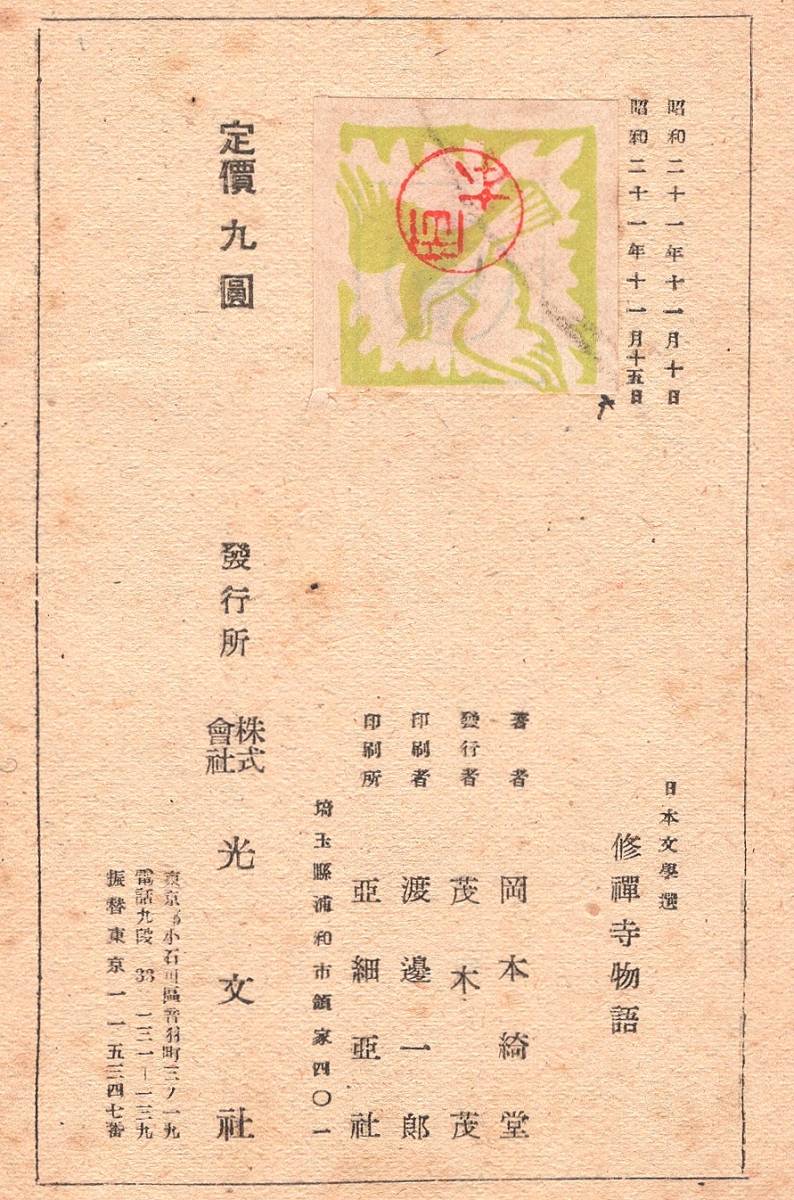 昭和二十一年十一月十日
昭和二十一年十一月十五日
定價九圓
日本文學選
修禪寺物語
著者 岡本綺堂
發行者 茂木茂
印刷者 渡邊一郎
印刷所 亞細亞社
埼玉縣浦和市領家四〇一
發行所 株式會社 光文社
東京都小石川區音羽町三ノ一九
電話九段 33 一三一―一三九
振替東京一一五三四七番